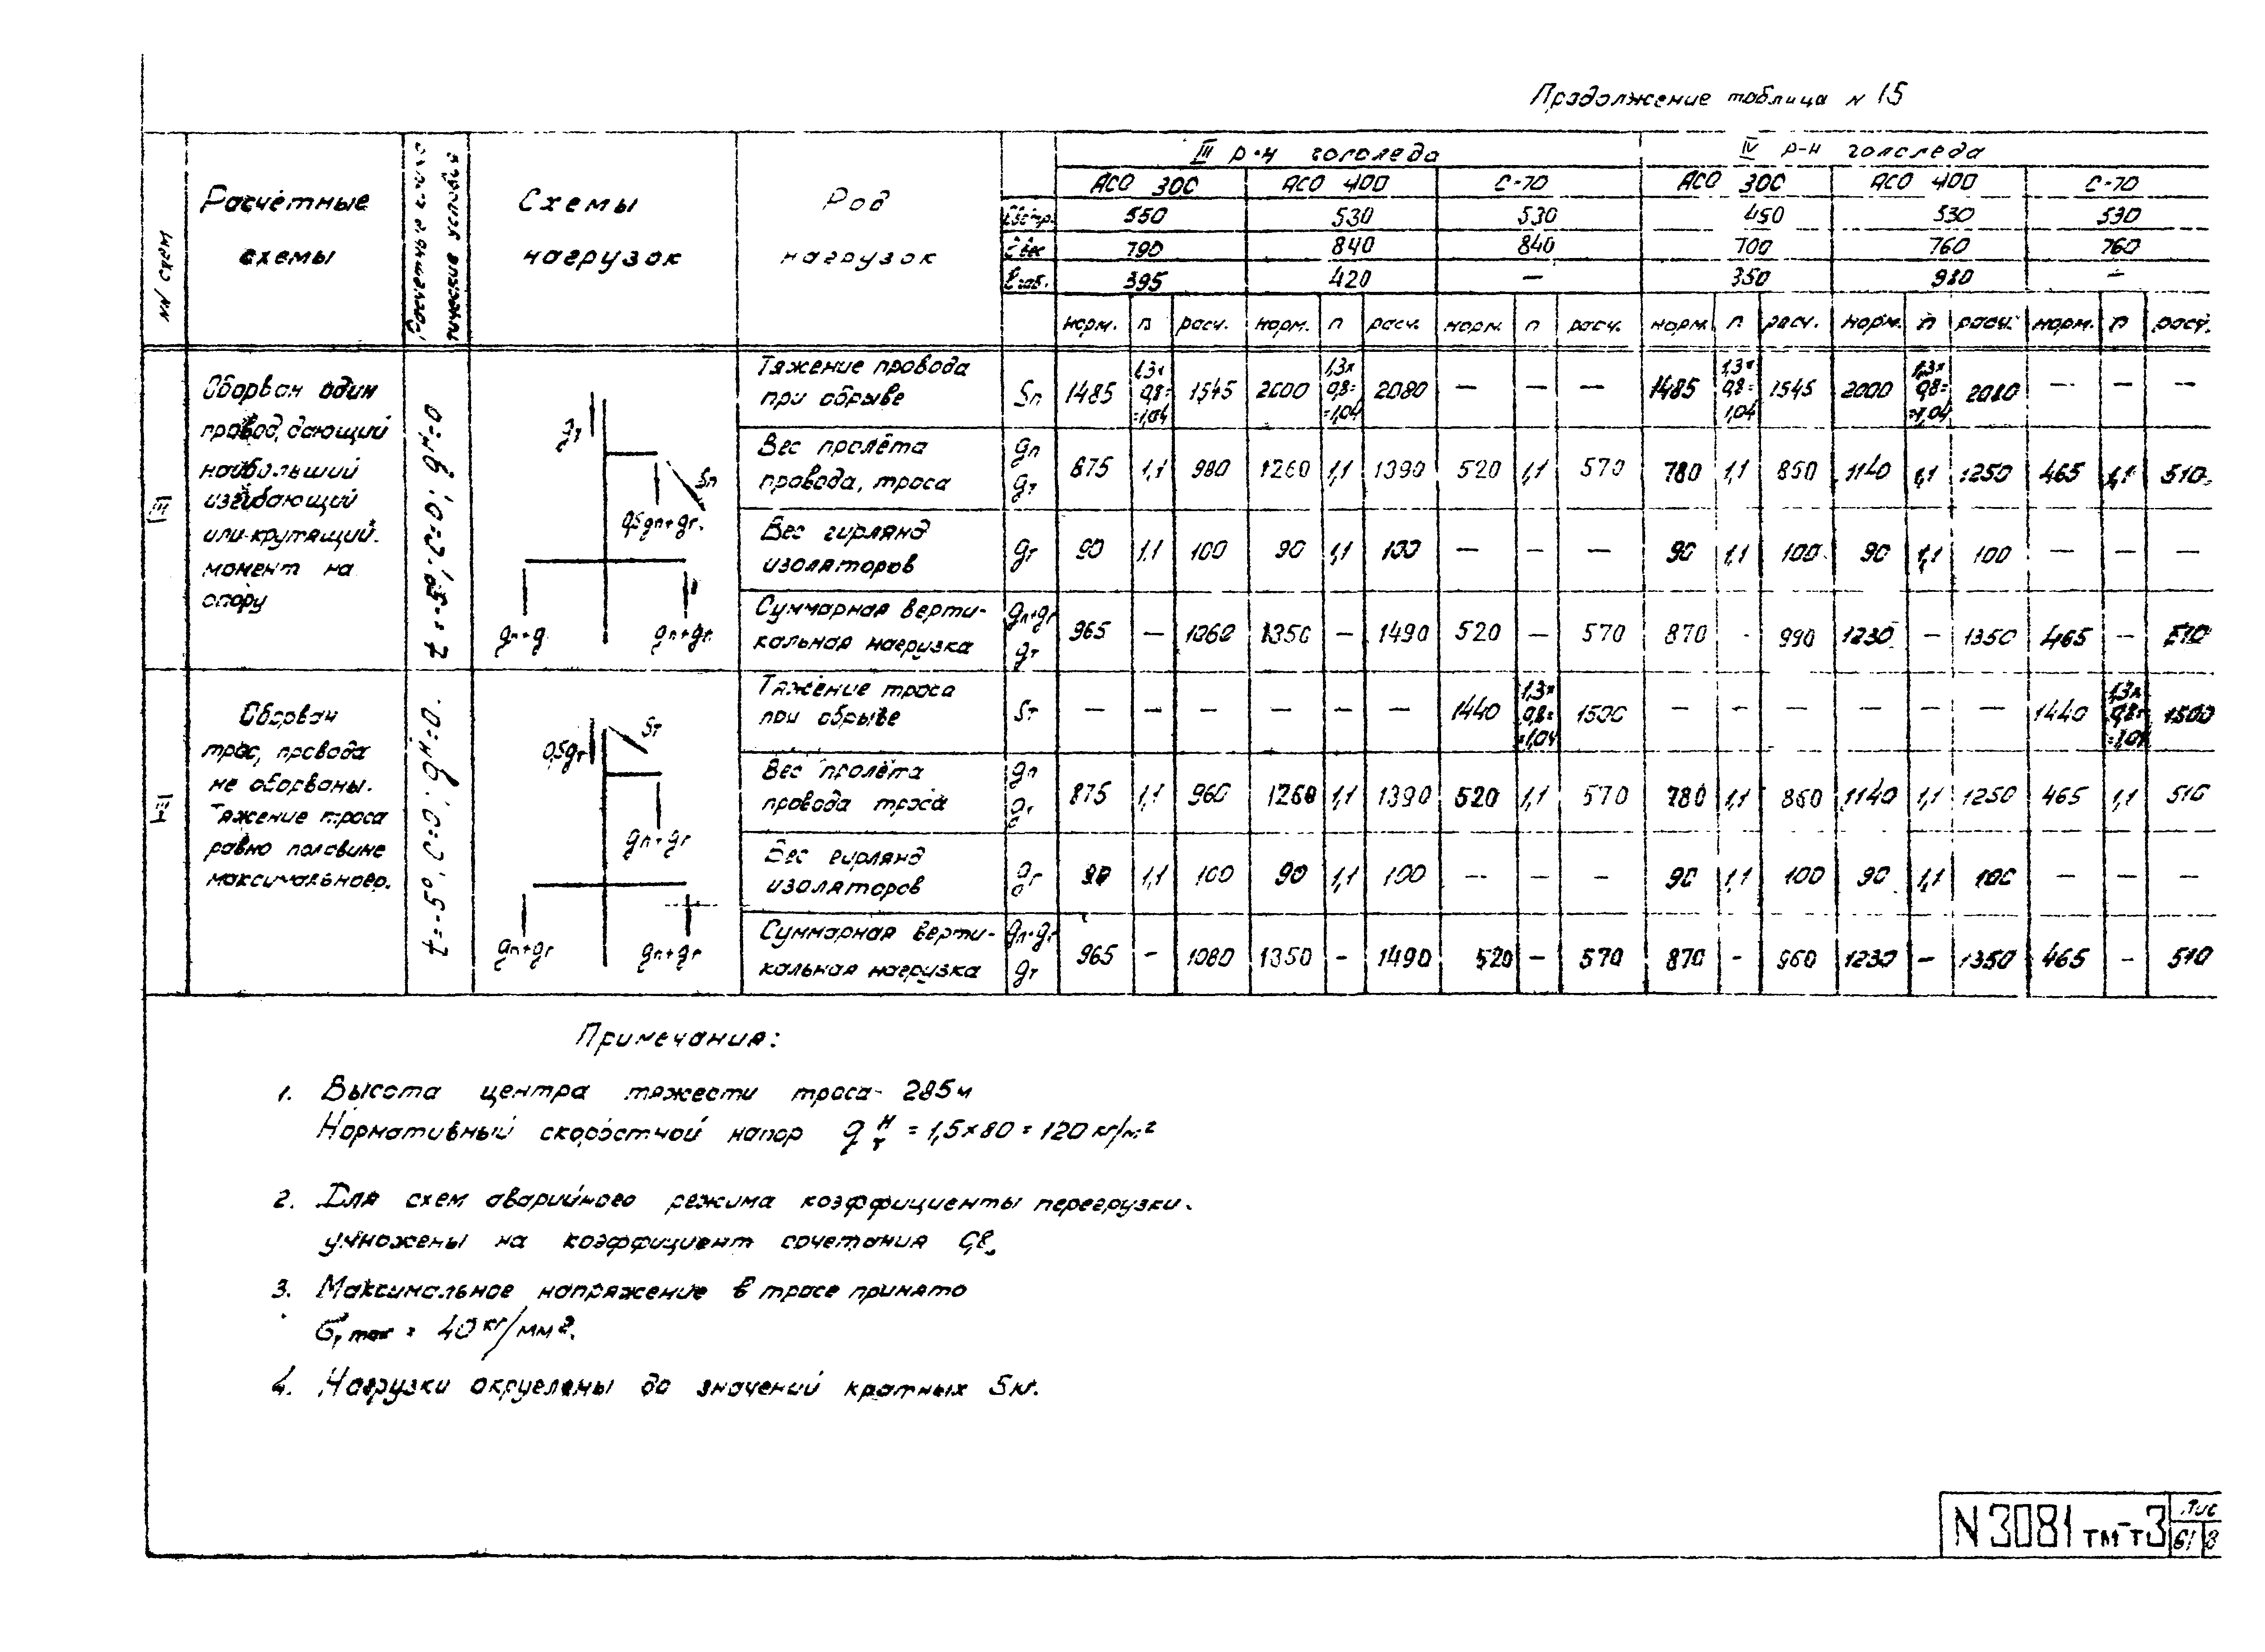 Продолжение таблица N 15
III р-н гололеда
IV р-н гололеда
АСО 300
АСО 400
С-70
АСО 300
АСО 400
С-70
NN схем
Расчётные схемы
Схемы нагрузок
Род нагрузок
550 530 530 450 530 530
790 840 840 700 760 760
ℓ габ. 395 420 — 350 980 —
норм. n расч. норм. n расч. норм. n расч. норм. n расч. норм. n расч. норм. n расч.
III
Оборван один
провод, дающий
наибольший
изгибающий
или крутящий
момент на
опору
t=-5°, C=0, qн=0
gт
Sп
0,5gп+gг
gп+g
gп+gг
Тяжение провода
при обрыве
Sп 1485 1,3×0,8=1,04 1545 2000 1,3×0,8=1,04 2080 — — — 1485 1,3×0,8=1,04 1545 2000 1,3×0,8=1,04 2080 — — —
Вес пролёта
провода, троса
gп
gт
875 1,1 980 1260 1,1 1390 520 1,1 570 780 1,1 860 1140 1,1 1250 465 1,1 510
Вес гирлянд
изоляторов
gг 90 1,1 100 90 1,1 100 — — — 90 1,1 100 90 1,1 100 — — —
Суммарная верти-
кальная нагрузка
gп+gг
gт
965 — 1060 1350 — 1490 520 — 570 870 - 990 1230 — 1350 465 — 510
Оборван
трос, провода
не оборваны.
Тяжение троса
равно половине
максимального.
t=-5°, C=0, qн=0.
0,5gт
Sт
gп+gг
gп+gг
gп+gг
Тяжение троса
при обрыве
Sт — — — — — — 1440 1,3×0,8=1,04 1500 — — — — — — 1440 1,3×0,8=1,04 1500
Вес пролёта
провода троса
gп
gт
875 1,1 960 1260 1,1 1390 520 1,1 570 780 1,1 860 1140 1,1 1250 465 1,1 510
Вес гирлянд
изоляторов
gг 90 1,1 100 90 1,1 100 — — — 90 1,1 100 90 1,1 100 — — —
Суммарная верти-
кальная нагрузка
gп+gг
gт
965 — 1080 1350 — 1490 520 — 570 870 — 960 1230 — 1350 465 — 510
Примечания:
1. Высота центра тяжести троса - 285м
Нормативный скоростной напор qнт = 1,5×80 = 120 кг/м2
2. Для схем аварийного режима коэффициенты перегрузки
умножены на коэффициент сочетания 0,8.
3. Максимальное напряжение в тросе принято
σт max = 40 кг/мм2.
4. Нагрузки округлены до значений кратных 5кг.
N 3081 тм-т3
Лис
61 8